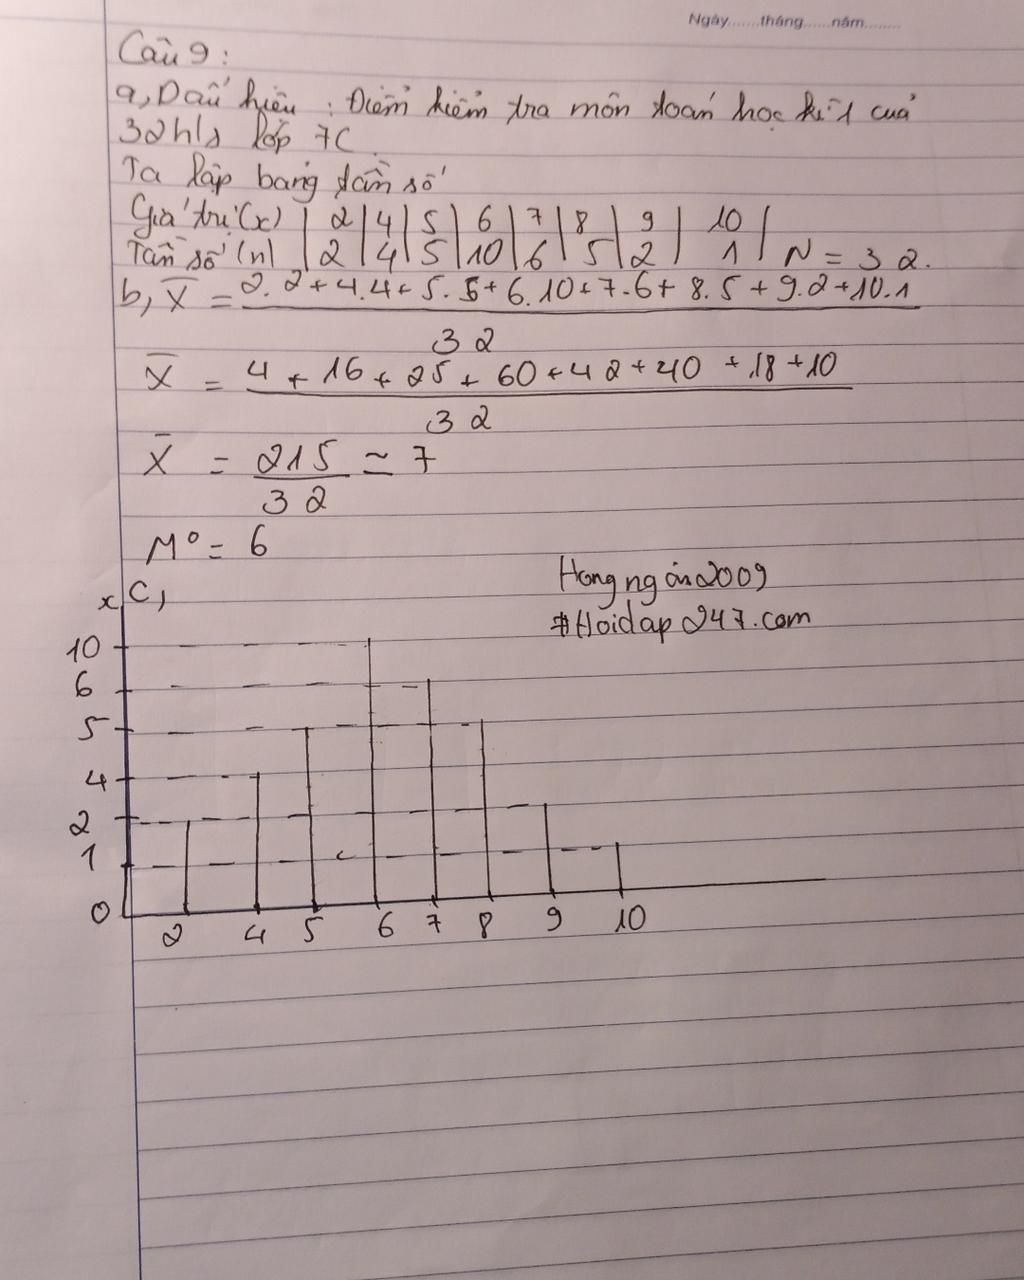 Ngày.......tháng......năm........
Câu 9:
a, Dấu hiệu : Điểm kiểm tra môn toán học kì 1 của
32 h/s lớp 7C
Ta lập bảng tần số
Giá trị (x) | 2 | 4 | 5 | 6 | 7 | 8 | 9 | 10 |
Tần số (n) | 2 | 4 | 5 | 10 | 6 | 5 | 2 | 1 | N = 32.
b, X̄ = 2.2+4.4+5.5+6.10+7.6+8.5+9.2+10.1
32
X̄ = 4+16+25+60+42+40+18+10
32
X̄ = 215 ≃ 7
32
M° = 6
Hongngân2009
#Hoidap247.com
x C,
10
6
5
4
2
1
0
2 4 5 6 7 8 9 10